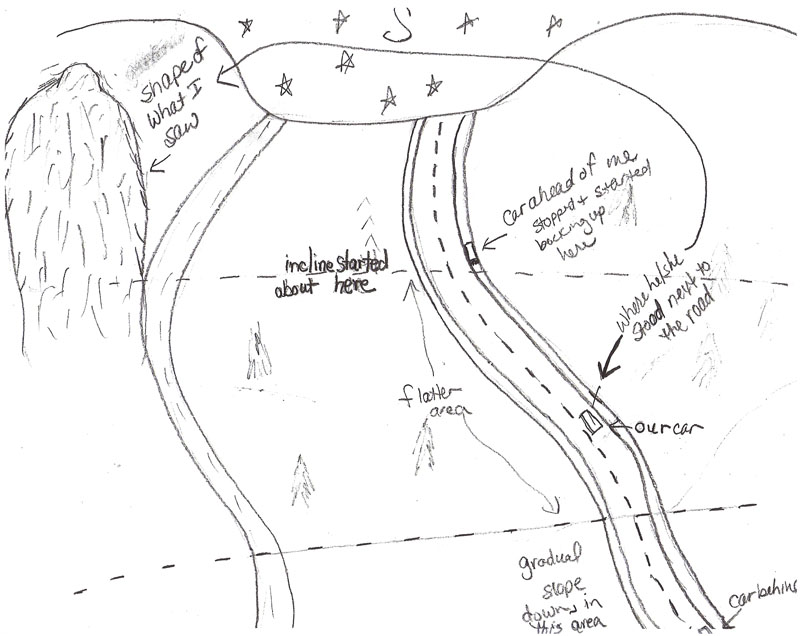 shape of
what I
saw
car ahead of me
stopped + started
backing up
here
incline started
about here
where he/she
stood next to
the road
flatter
area
our car
gradual
slope
down in
this area
car behind